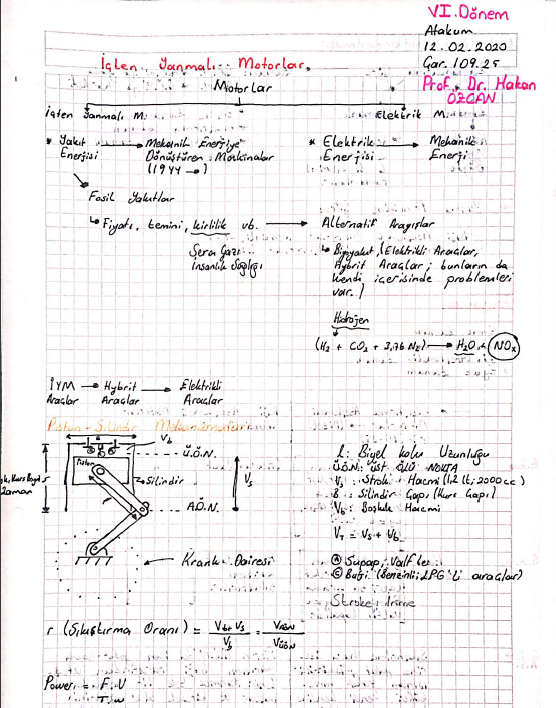 VI. Dönem
Atakum
12.02.2020
Gar. 109.25
İçten Yanmalı Motorlar
Prof. Dr. Hakan
ÖZCAN
Motorlar
İçten Yanmalı M.
Elektrik M.
* Yakıt → Mekanik Enerjiye
Enerjisi Dönüştüren Makinalar
(1944 → )
* Elektrik → Mekanik
Enerjisi Enerji
Fosil Yakıtlar
↳ Fiyatı, temini, kirlilik vb. → Alternatif Arayışlar
Sera Gazı
İnsanlık Sağlığı
↳ Biyoyakıt, (Elektrikli Araçlar,
Hybrit Araçlar; bunların da
kendi içerisinde problemleri
var.)
Hidrojen
(H2 + CO2 + 3,76 N2) → H2O + NOx
İYM → Hybrit → Elektrikli
Araçlar Araçlar Araçlar
Piston - Silindir
Vb
Ü.Ö.N.
Piston
Silindir
Vs
A.Ö.N.
Zaman
Krank Dairesi
L: Biyel kolu Uzunluğu
Ü.Ö.N: üst ÖLÜ NOKTA
Vs: Strok Hacmi (1,2 lt, 2000cc)
B: Silindir Çapı (Kurs Çapı)
Vb: Boşluk Hacmi
VT = Vs + Vb
Ⓐ Supap, Valfler
Ⓒ Buji (Benzinli, LPG'li araçlar)
Stroke:
r (Sıkıştırma Oranı) = Vb+Vs / Vb = VAÖN / VÜÖN
Power = F.V
T.w